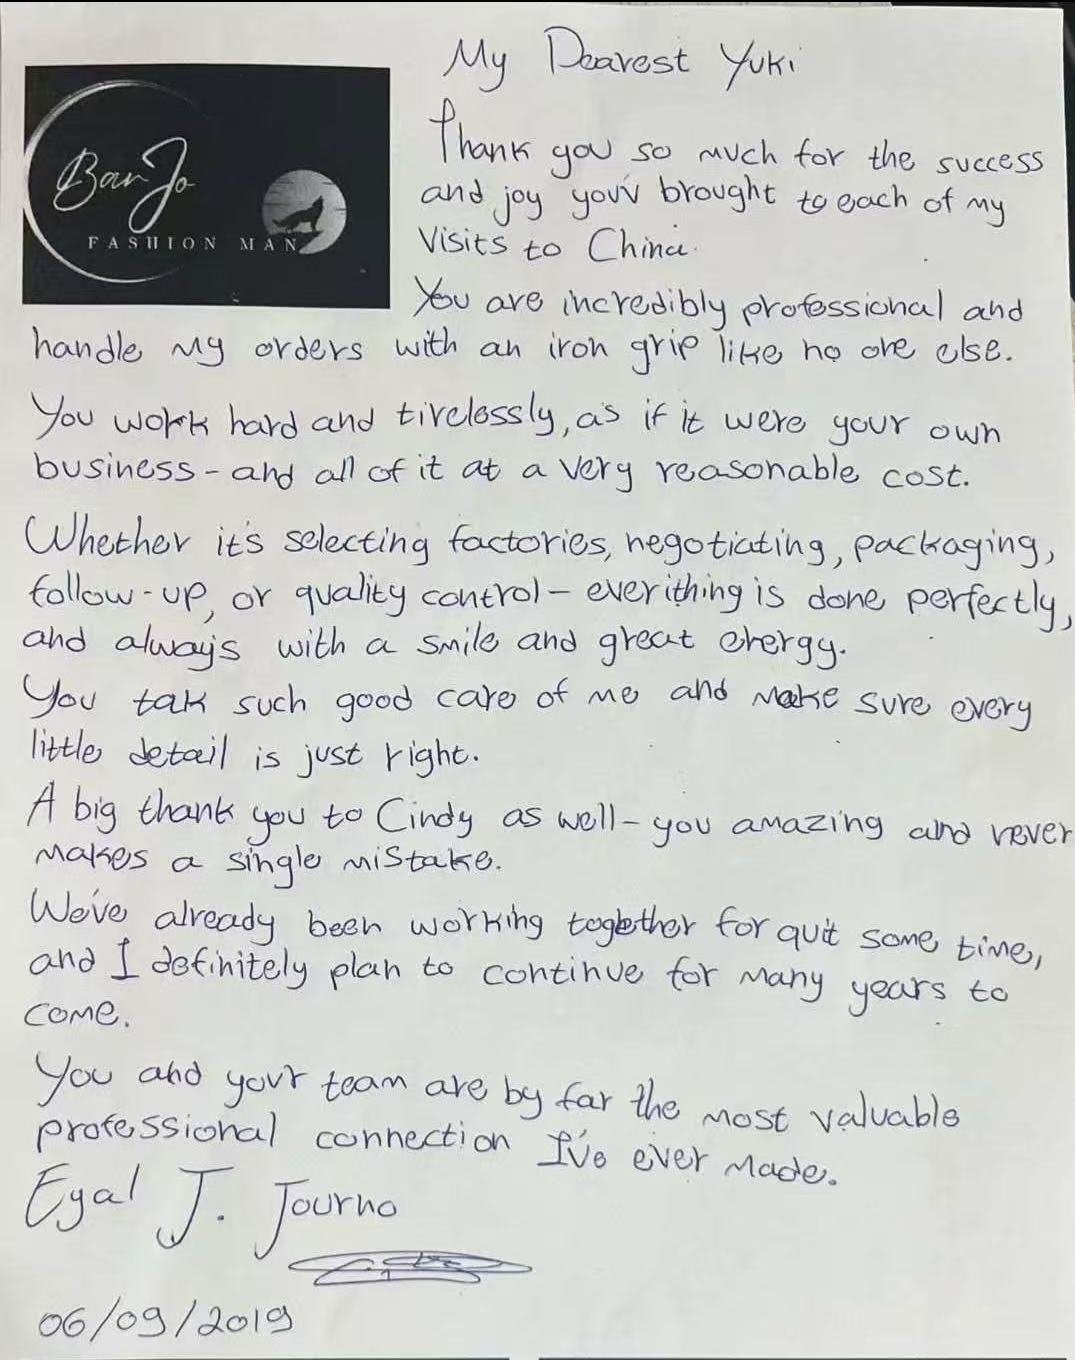 My Dearest Yuki
BanJo
FASHION MAN
Thank you so much for the success
and joy youv brought to each of my
Visits to China.
You are incredibly professional and
handle my orders with an iron grip like no one else.
You work hard and tirelessly, as if it were your own
business - and all of it at a very reasonable cost.
Whether it's selecting factories, negotiating, packaging,
follow-up, or quality control - everithing is done perfectly,
and always with a smile and great energy.
You tak such good care of me and make sure every
little detail is just right.
A big thank you to Cindy as well - you amazing and never
makes a single mistake.
We've already been working together for quit some time,
and I definitely plan to continue for many years to
come.
You and your team are by far the most valuable
professional connection I've ever made.
Eyal J. Journo
06/09/2019